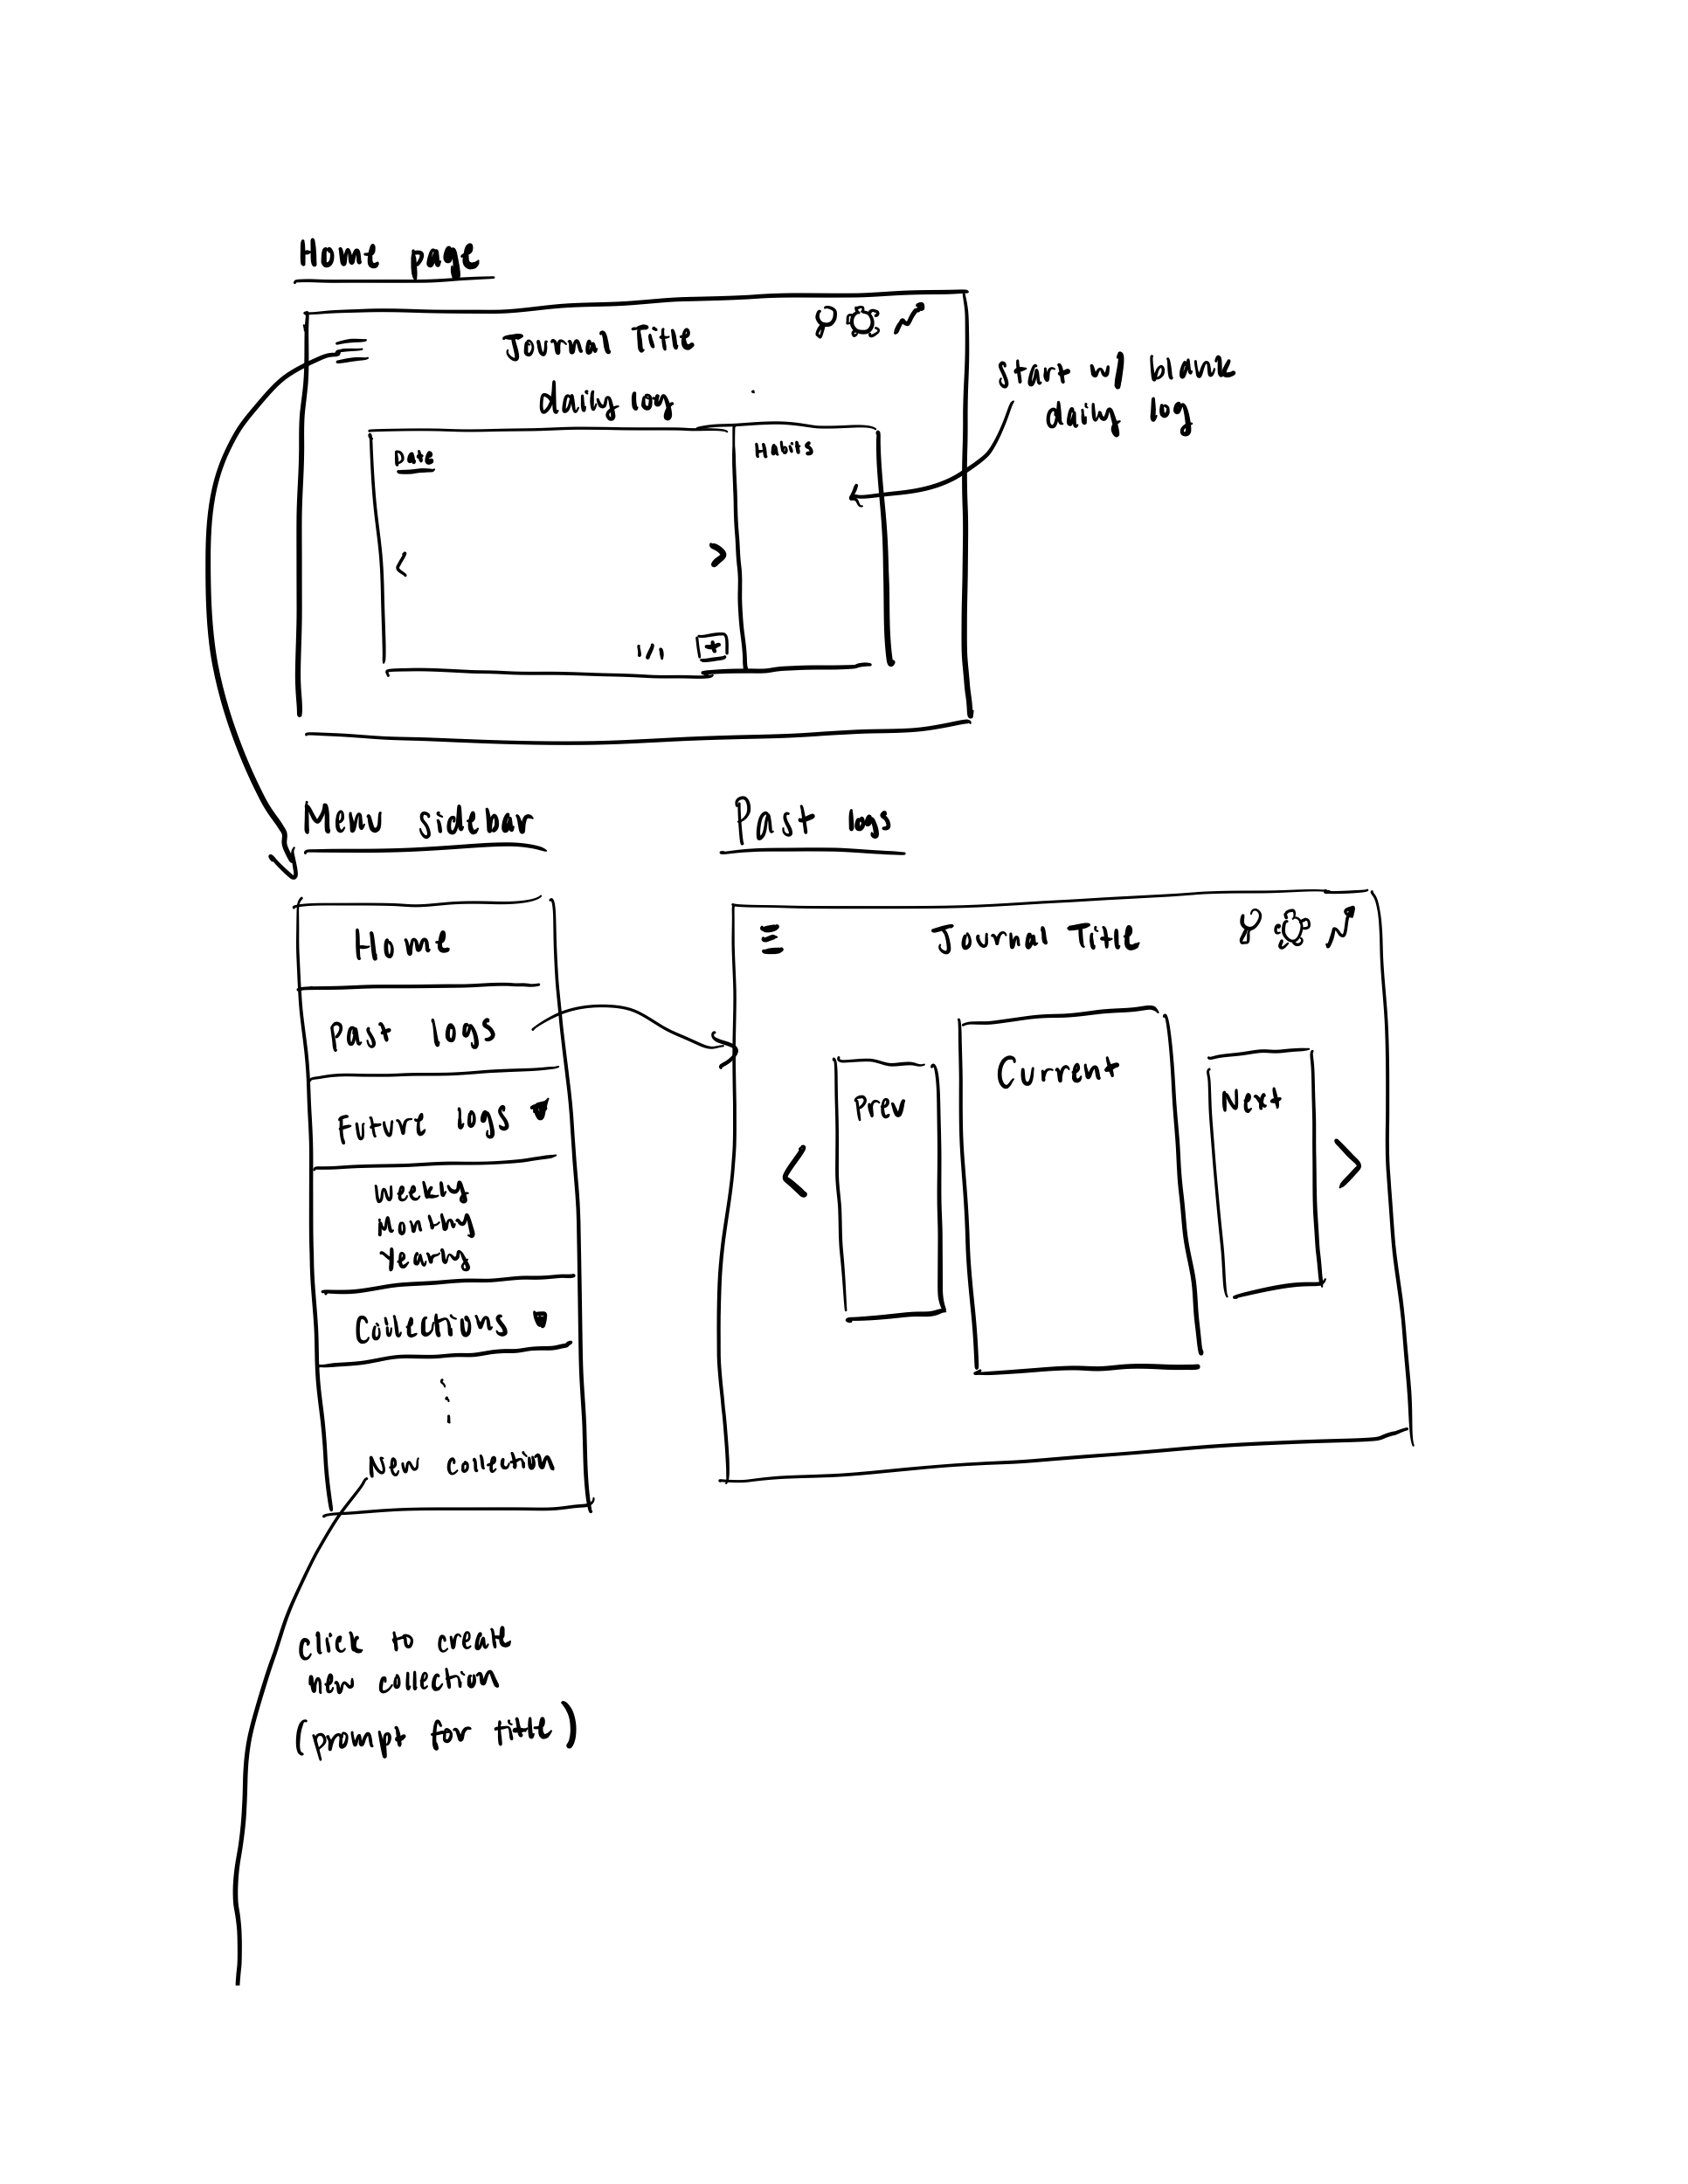 Home page
Journal Title
daily log
start w/ blank
daily log
Date
Habits
<
>
1/1
+
Menu sidebar
Home
Past logs
Future logs
Weekly
Monthly
Yearly
Collections
New collection
click to create
new collection
(prompt for title)
Past logs
Journal Title
Prev
Current
Next
<
>